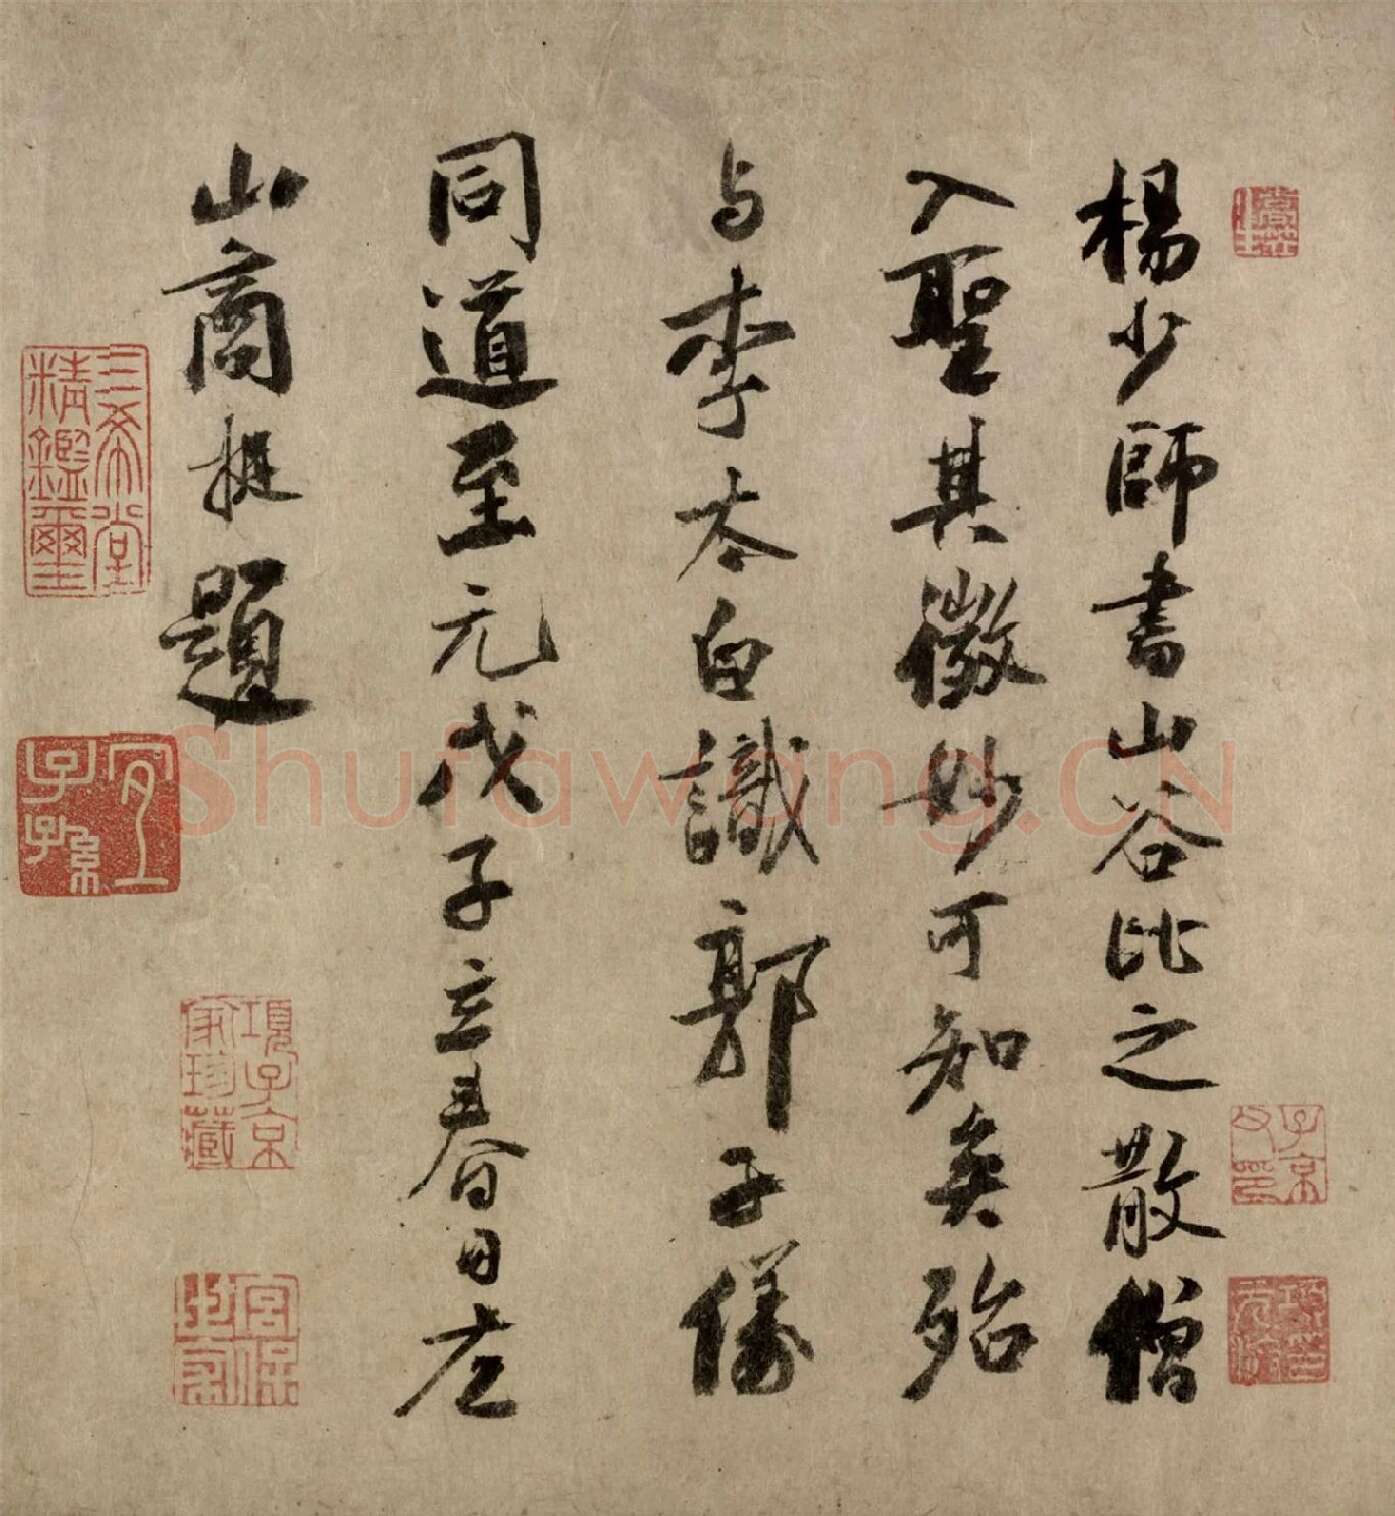 楊少師書山谷比之散僧
入聖其微妙可知矣殆
与李太白識郭子儀
同道至元戊子立春日左
山商挺題
三希堂
精鑑璽
宜
子孫
項子京
家珍藏
宮保
世家
子京
Shufawang.CN